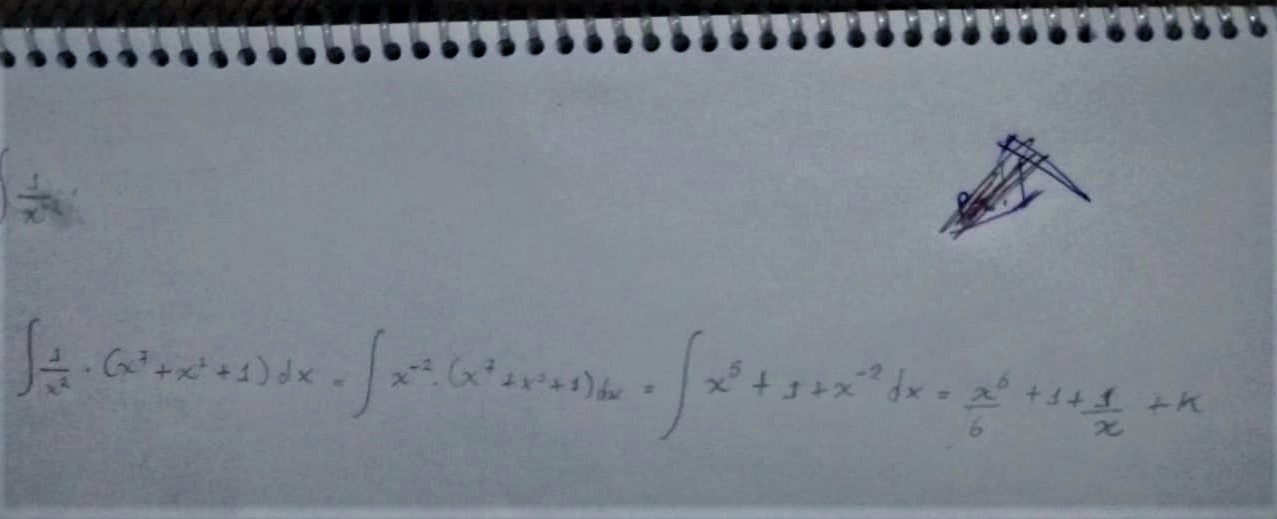 ∫ 1/x²
∫ 1/x² · (x⁷ + x² + 1) dx = ∫ x⁻² · (x⁷ + x² + 1) dx = ∫ x⁵ + 1 + x⁻² dx = x⁶/6 + 1 + 1/x + K